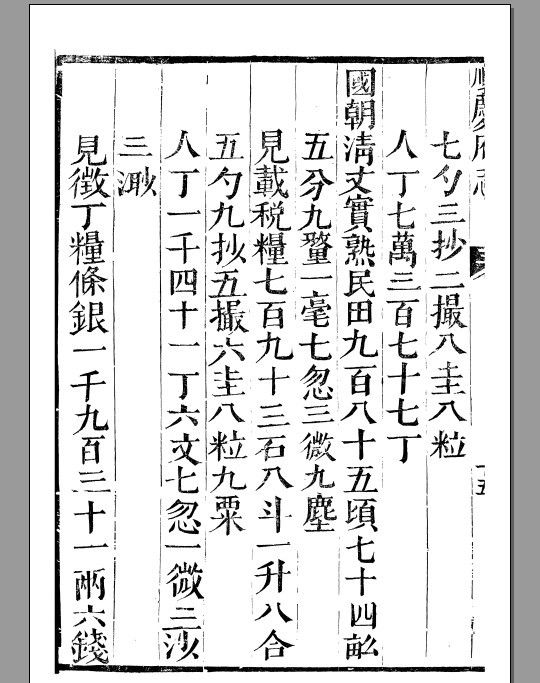 順慶府志
七勺三抄二撮八圭八粒
人丁七萬三百七十七丁
國朝淸丈實熟民田九百八十五頃七十四畝
五分九釐一毫七忽三微九塵
見載稅糧七百九十三石八斗一升八合
五勺九抄五撮六圭八粒九粟
人丁一千四十一丁六文七忽一微三沙
三渺
見徵丁糧條銀一千九百三十一兩六錢